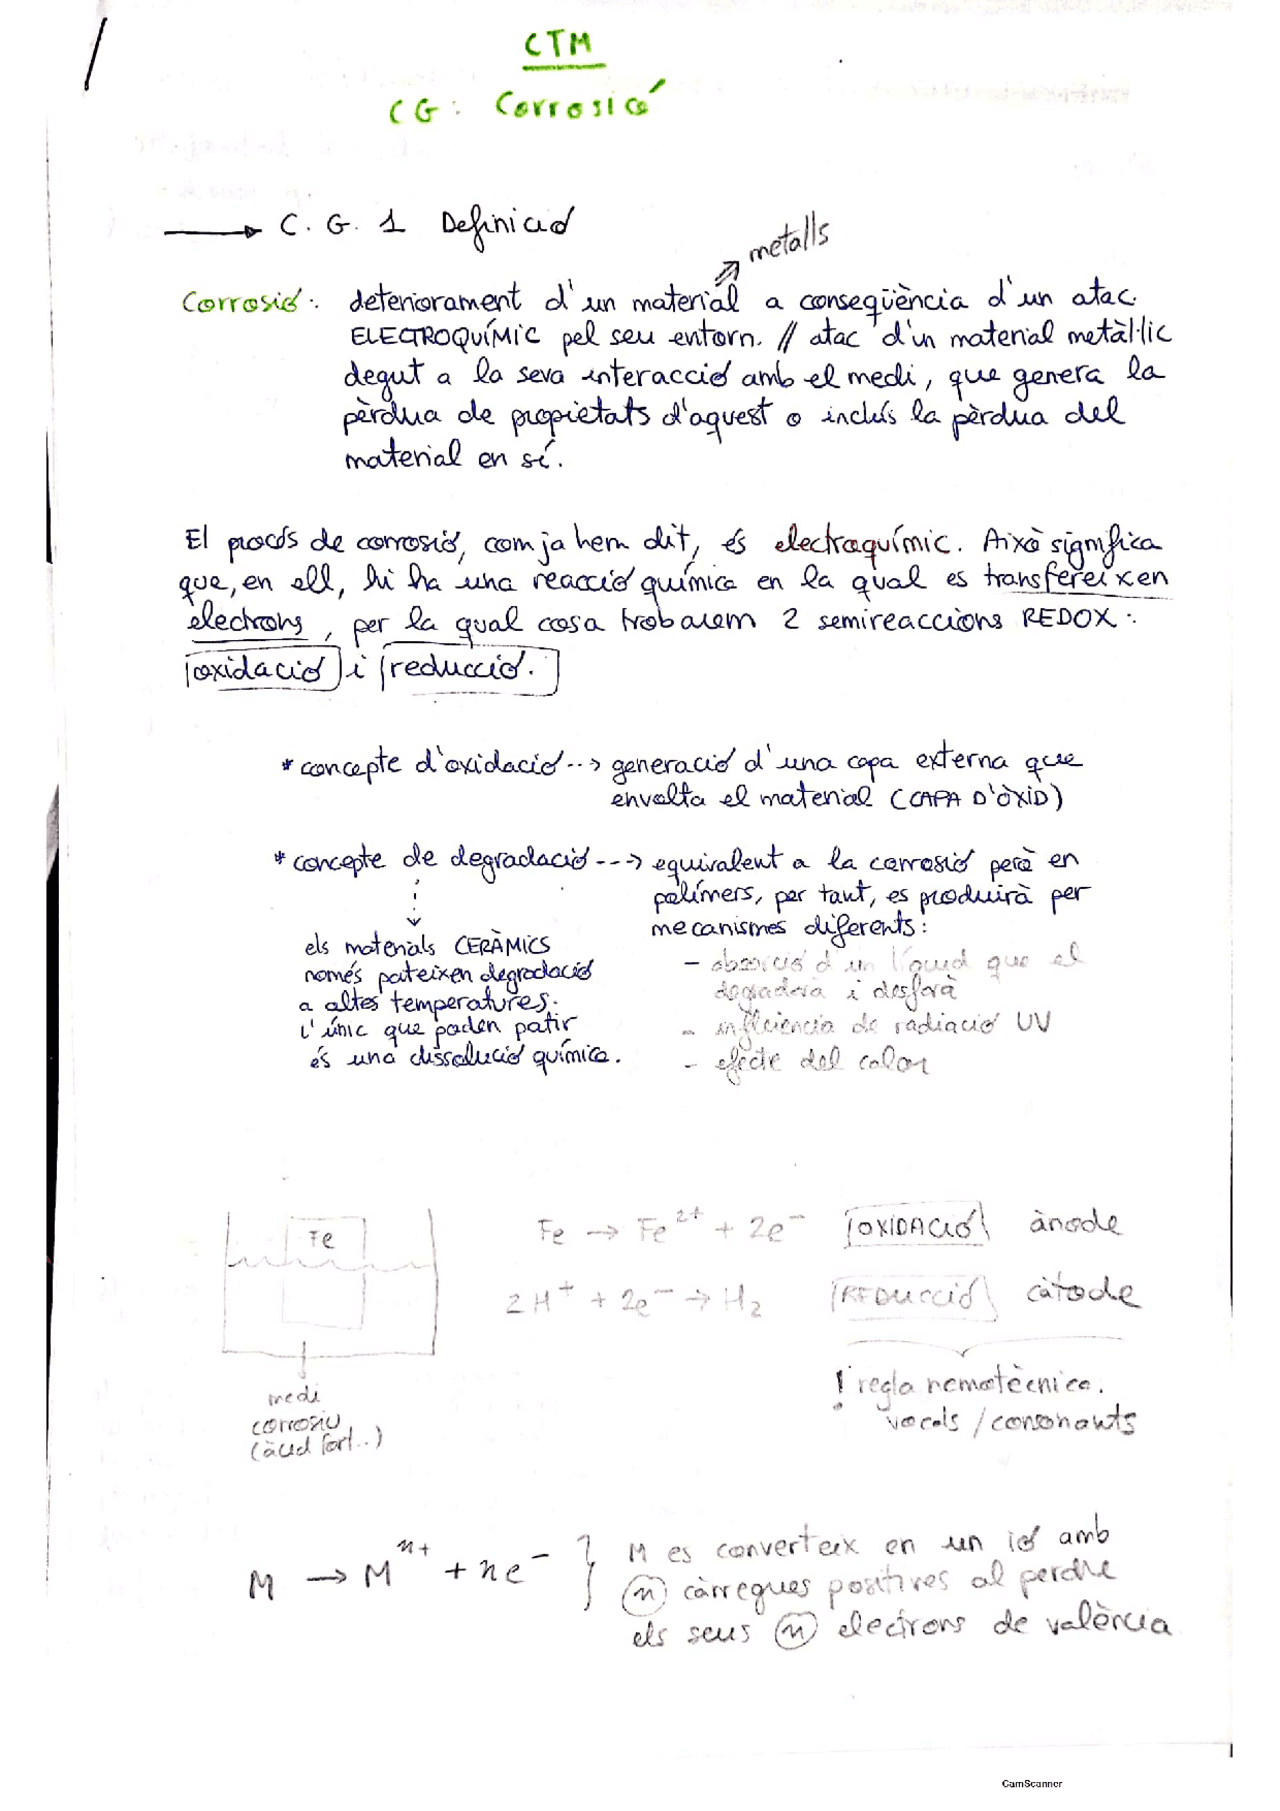 CTM
CG: Corrosió
→ C. G. 1 Definició
metalls
Corrosió: deteriorament d'un material a conseqüència d'un atac
ELECTROQUÍMIC pel seu entorn. // atac d'un material metàl·lic
degut a la seva interacció amb el medi, que genera la
pèrdua de propietats d'aquest o inclús la pèrdua del
material en sí.
El procés de corrosió, com ja hem dit, és electroquímic. Això significa
que, en ell, hi ha una reacció química en la qual es transfereixen
electrons, per la qual cosa trobarem 2 semireaccions REDOX:
oxidació i reducció.
* concepte d'oxidació --> generació d'una capa externa que
envolta el material (CAPA D'ÒXID)
* concepte de degradació ---> equivalent a la corrosió però en
polímers, per tant, es produirà per
mecanismes diferents:
- absorció d'un líquid que el
degradarà i desfarà
- influència de radiació UV
- efecte del calor
els materials CERÀMICS
només pateixen degradació
a altes temperatures.
L'únic que poden patir
és una dissolució química.
Fe
medi
corrosiu
(àcid fort..)
Fe → Fe²⁺ + 2e⁻ OXIDACIÓ ànode
2H⁺ + 2e⁻ → H₂ REDUCCIÓ càtode
! regla nemotècnica.
vocals / consonants
M → Mⁿ⁺ + ne⁻ } M es converteix en un ió amb
n càrregues positives al perdre
els seus n electrons de valència
CamScanner